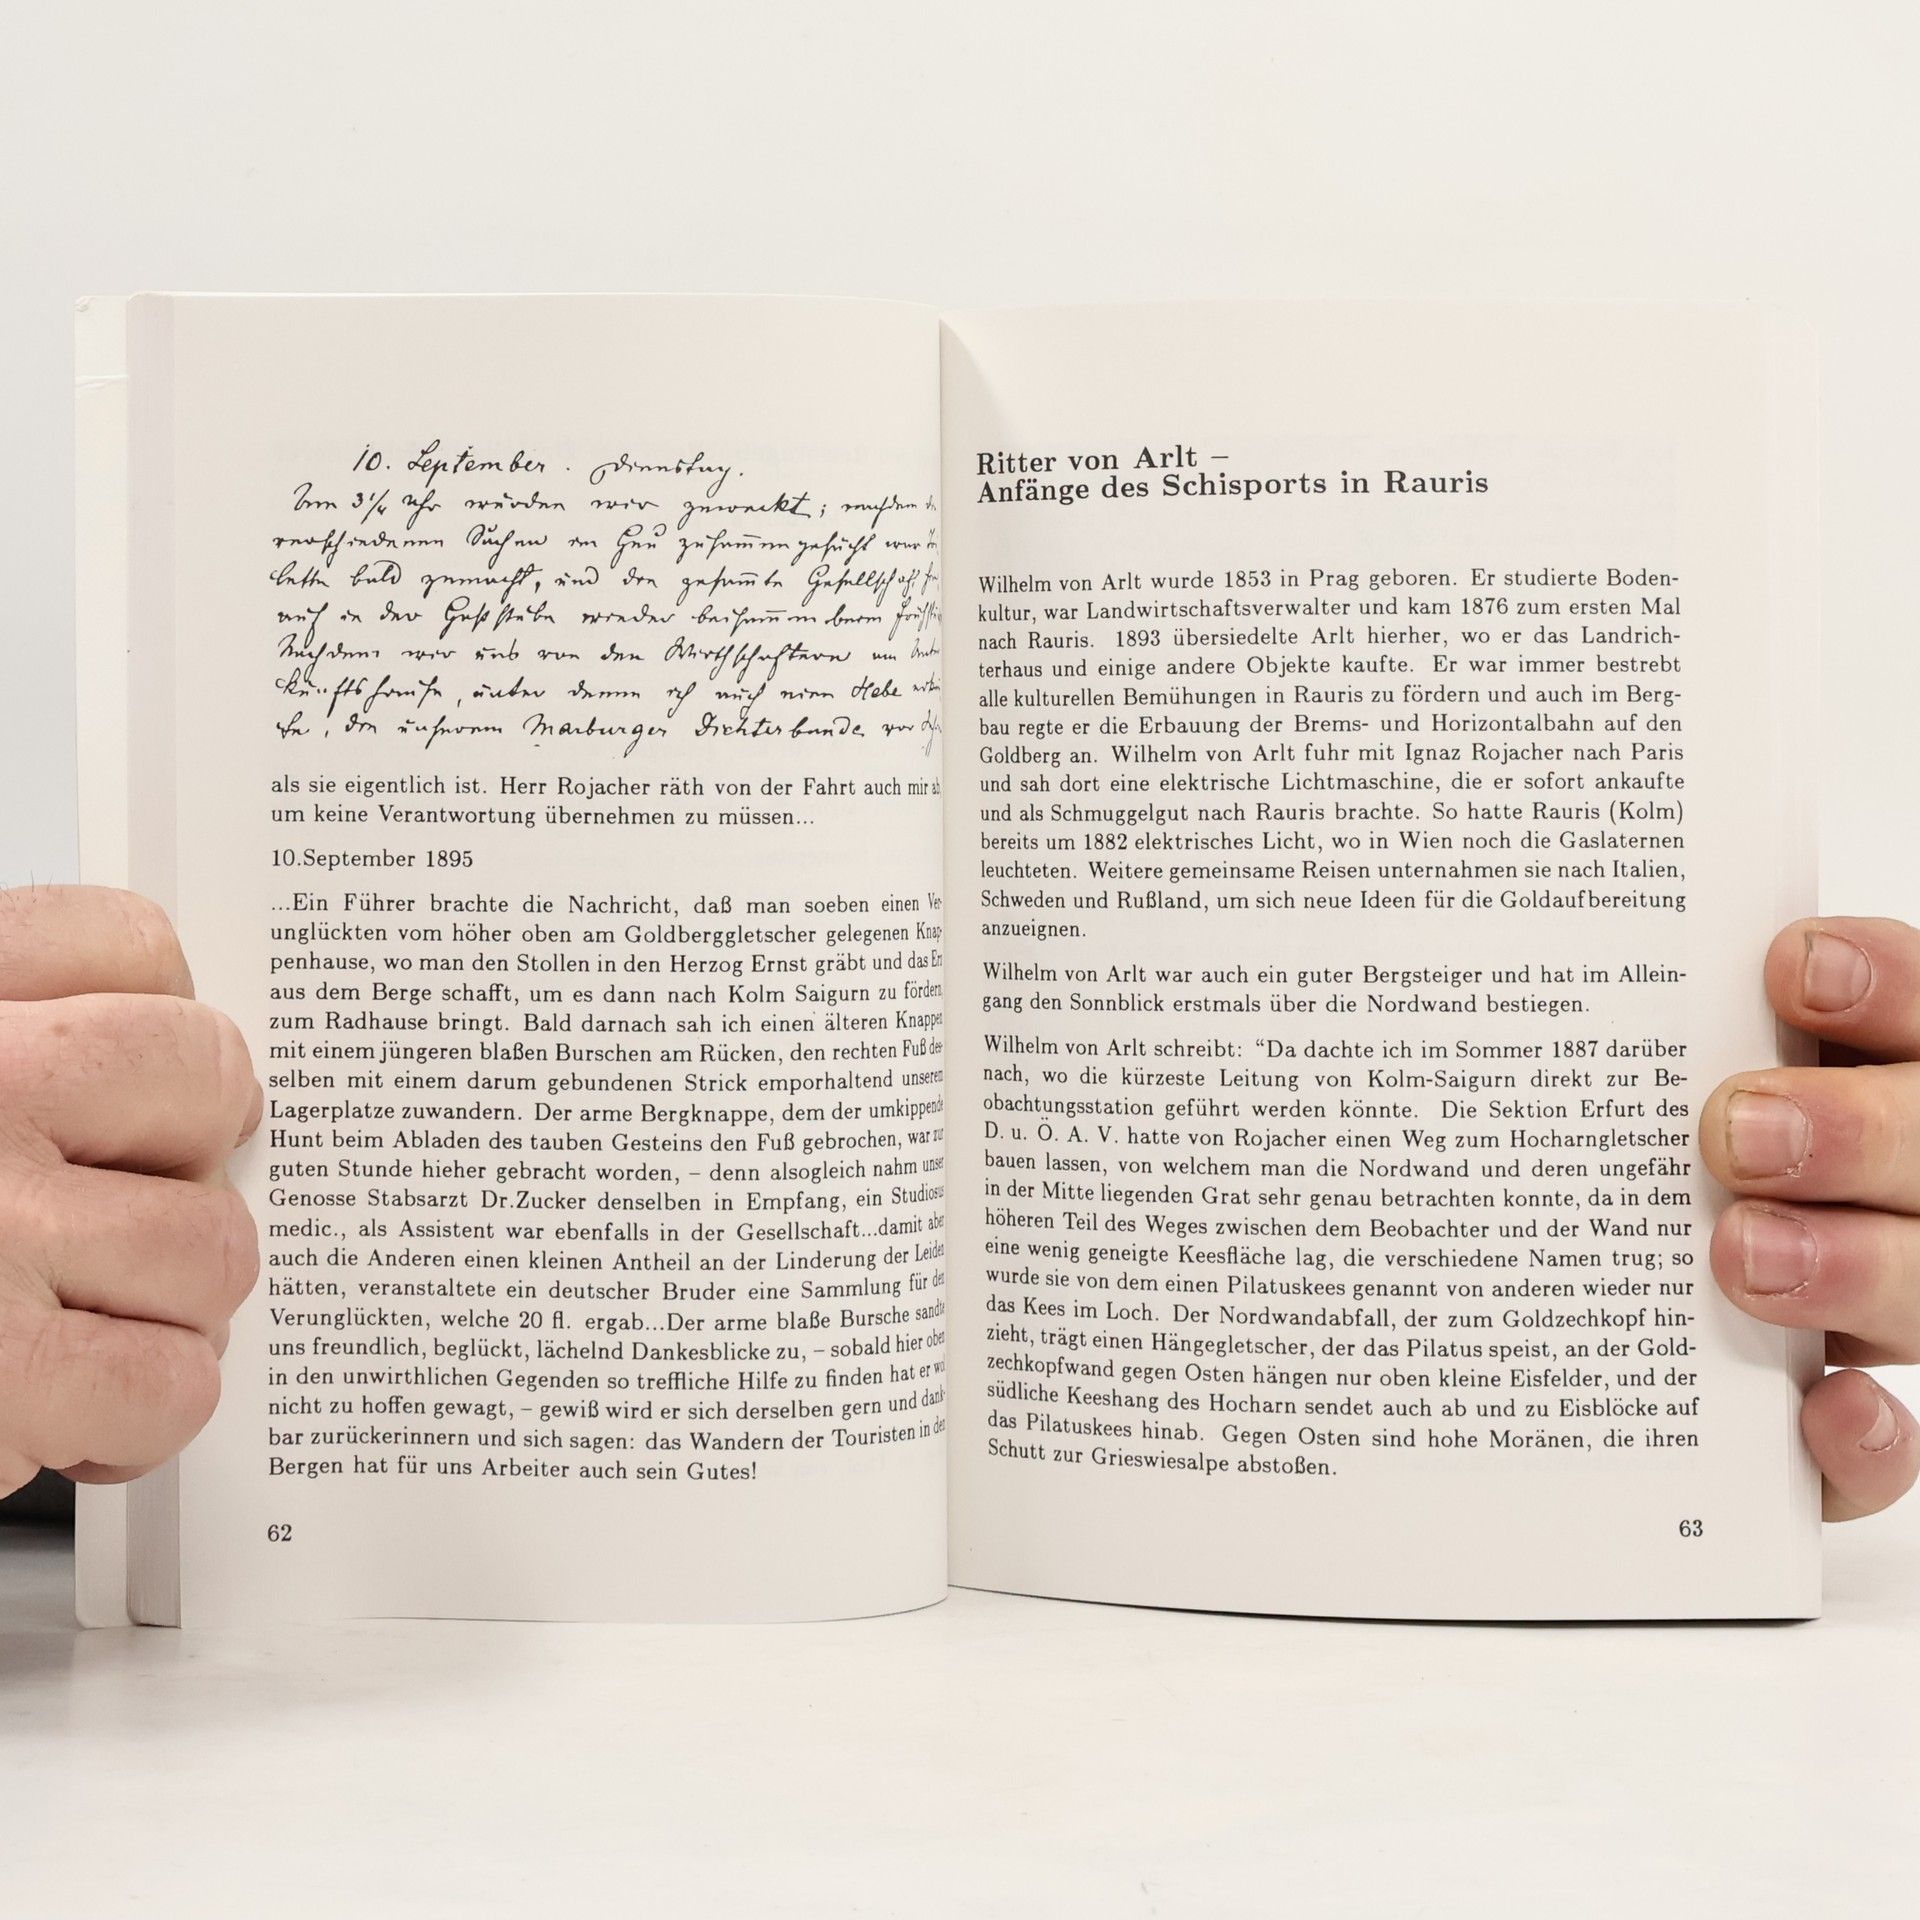 10. September. Dienstag.
Um 3¼ Uhr wurden wir geweckt; nachdem
verschiedenen Sachen im Heu zusammengesucht war
bald gemacht, und die gesammte Gesellschaft
auch in der Gaststube wieder beisammen beim
Nachdem wir uns von den Wirthschaftern im
kunftshause, unter denen ich auch eine Hebe
, die unserem Marburger Dichterbunde vor
als sie eigentlich ist. Herr Rojacher räth von der Fahrt auch mir ab,
um keine Verantwortung übernehmen zu müssen...
10.September 1895
...Ein Führer brachte die Nachricht, daß man soeben einen Ver-
unglückten vom höher oben am Goldberggletscher gelegenen Knap-
penhause, wo man den Stollen in den Herzog Ernst gräbt und das Erz
aus dem Berge schafft, um es dann nach Kolm Saigurn zu fördern,
zum Radhause bringt. Bald darnach sah ich einen älteren Knappen
mit einem jüngeren blaßen Burschen am Rücken, den rechten Fuß des-
selben mit einem darum gebundenen Strick emporhaltend unserem
Lagerplatze zuwandern. Der arme Bergknappe, dem der umkippende
Hunt beim Abladen des tauben Gesteins den Fuß gebrochen, war zur
guten Stunde hieher gebracht worden, – denn alsogleich nahm unser
Genosse Stabsarzt Dr.Zucker denselben in Empfang, ein Studiosus
medic., als Assistent war ebenfalls in der Gesellschaft...damit aber
auch die Anderen einen kleinen Antheil an der Linderung der Leiden
hätten, veranstaltete ein deutscher Bruder eine Sammlung für den
Verunglückten, welche 20 fl. ergab...Der arme blaße Bursche sandte
uns freundlich, beglückt, lächelnd Dankesblicke zu, – sobald hier oben
in den unwirthlichen Gegenden so treffliche Hilfe zu finden hat er wol
nicht zu hoffen gewagt, – gewiß wird er sich derselben gern und dank-
bar zurückerinnern und sich sagen: das Wandern der Touristen in den
Bergen hat für uns Arbeiter auch sein Gutes!
62
Ritter von Arlt –
Anfänge des Schisports in Rauris
Wilhelm von Arlt wurde 1853 in Prag geboren. Er studierte Boden-
kultur, war Landwirtschaftsverwalter und kam 1876 zum ersten Mal
nach Rauris. 1893 übersiedelte Arlt hierher, wo er das Landrich-
terhaus und einige andere Objekte kaufte. Er war immer bestrebt
alle kulturellen Bemühungen in Rauris zu fördern und auch im Berg-
bau regte er die Erbauung der Brems- und Horizontalbahn auf den
Goldberg an. Wilhelm von Arlt fuhr mit Ignaz Rojacher nach Paris
und sah dort eine elektrische Lichtmaschine, die er sofort ankaufte
und als Schmuggelgut nach Rauris brachte. So hatte Rauris (Kolm)
bereits um 1882 elektrisches Licht, wo in Wien noch die Gaslaternen
leuchteten. Weitere gemeinsame Reisen unternahmen sie nach Italien,
Schweden und Rußland, um sich neue Ideen für die Goldaufbereitung
anzueignen.
Wilhelm von Arlt war auch ein guter Bergsteiger und hat im Allein-
gang den Sonnblick erstmals über die Nordwand bestiegen.
Wilhelm von Arlt schreibt: “Da dachte ich im Sommer 1887 darüber
nach, wo die kürzeste Leitung von Kolm-Saigurn direkt zur Be-
obachtungsstation geführt werden könnte. Die Sektion Erfurt des
D. u. Ö. A. V. hatte von Rojacher einen Weg zum Hocharngletscher
bauen lassen, von welchem man die Nordwand und deren ungefähr
in der Mitte liegenden Grat sehr genau betrachten konnte, da in dem
höheren Teil des Weges zwischen dem Beobachter und der Wand nur
eine wenig geneigte Keesfläche lag, die verschiedene Namen trug; so
wurde sie von dem einen Pilatuskees genannt von anderen wieder nur
das Kees im Loch. Der Nordwandabfall, der zum Goldzechkopf hin-
zieht, trägt einen Hängegletscher, der das Pilatus speist, an der Gold-
zechkopfwand gegen Osten hängen nur oben kleine Eisfelder, und der
südliche Keeshang des Hocharn sendet auch ab und zu Eisblöcke auf
das Pilatuskees hinab. Gegen Osten sind hohe Moränen, die ihren
Schutt zur Grieswiesalpe abstoßen.
63